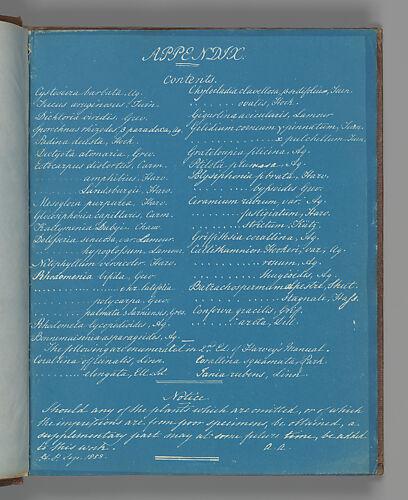 APPENDIX.
Contents.
Cystoseira barbata, Ag.
Fucus
Dichloria viridis Grev.
Sporochnus rhizodes β paradoxa, Ag.
Padina deusta, Hook.
Dictyota atomaria, Grev.
Ectocarpus distortus, Carm.
. . . . . . . . amphibius, Harv.
. . . . . . . . Landsburgii, Harv.
Mesogloia purpurea, Harv.
Gloiosiphonia capillaris, Carm.
Kallymenia Dubyi. Chauv.
Delesseria sinuosa, var. Lamour.
. . . . . . . . hypoglossum, Lamour.
Nitophyllum versicolor. Harv.
Rhodomenia bifida, Grev.
. . . . . . . . . . . . . . ciliata
. . . . . . . . polycarpa, Grev.
. . . . . . . . palmata β Sarniensis, Grev.
Rhodomela lycopodioides, Ag.
Bonnemaisonia asparagoides, Ag.
Chylocladia clavellosa, Turn.
. . . . . . . . ovalis, Hook.
Gigartina acicularis, Lamour
Gelidium corneum γ pinnatum, Turn.
. . . . . . . . . . . . . . pulchellum Turn.
Grateloupia filicina, Ag.
Ptilota plumosa. Ag.
Polysiphonia fibrata, Harv.
. . . . . . . . byssoides Grev.
Ceramium rubrum var. Ag.
. . . . . . . . fastigiatum, Harv.
. . . . . . . . strictum. Kütz.
Griffithsia corallina, Ag.
Callithamnion Hookeri, var., Ag.
. . . . . . . . tenue, Ag.
. . . . . . . . Ag.
Batrachospermum
. . . . . . . . stagnale, Hass.
Conferva gracilis, Griff.
. . . . . . . . arcta, Dill.
The following are enumerated in 2nd Ed. of Harvey's Manual.
Corallina officinalis, Linn. Corallina squamata, Park.
. . . . . . . . elongata, Ell. Jania rubens, Linn.
Notice
Should any of the plants which are omitted, or of which
the impressions are from poor specimens, be obtained, a
supplementary part may at some future time, be added
to this work. A. A.
Sep. 1853.